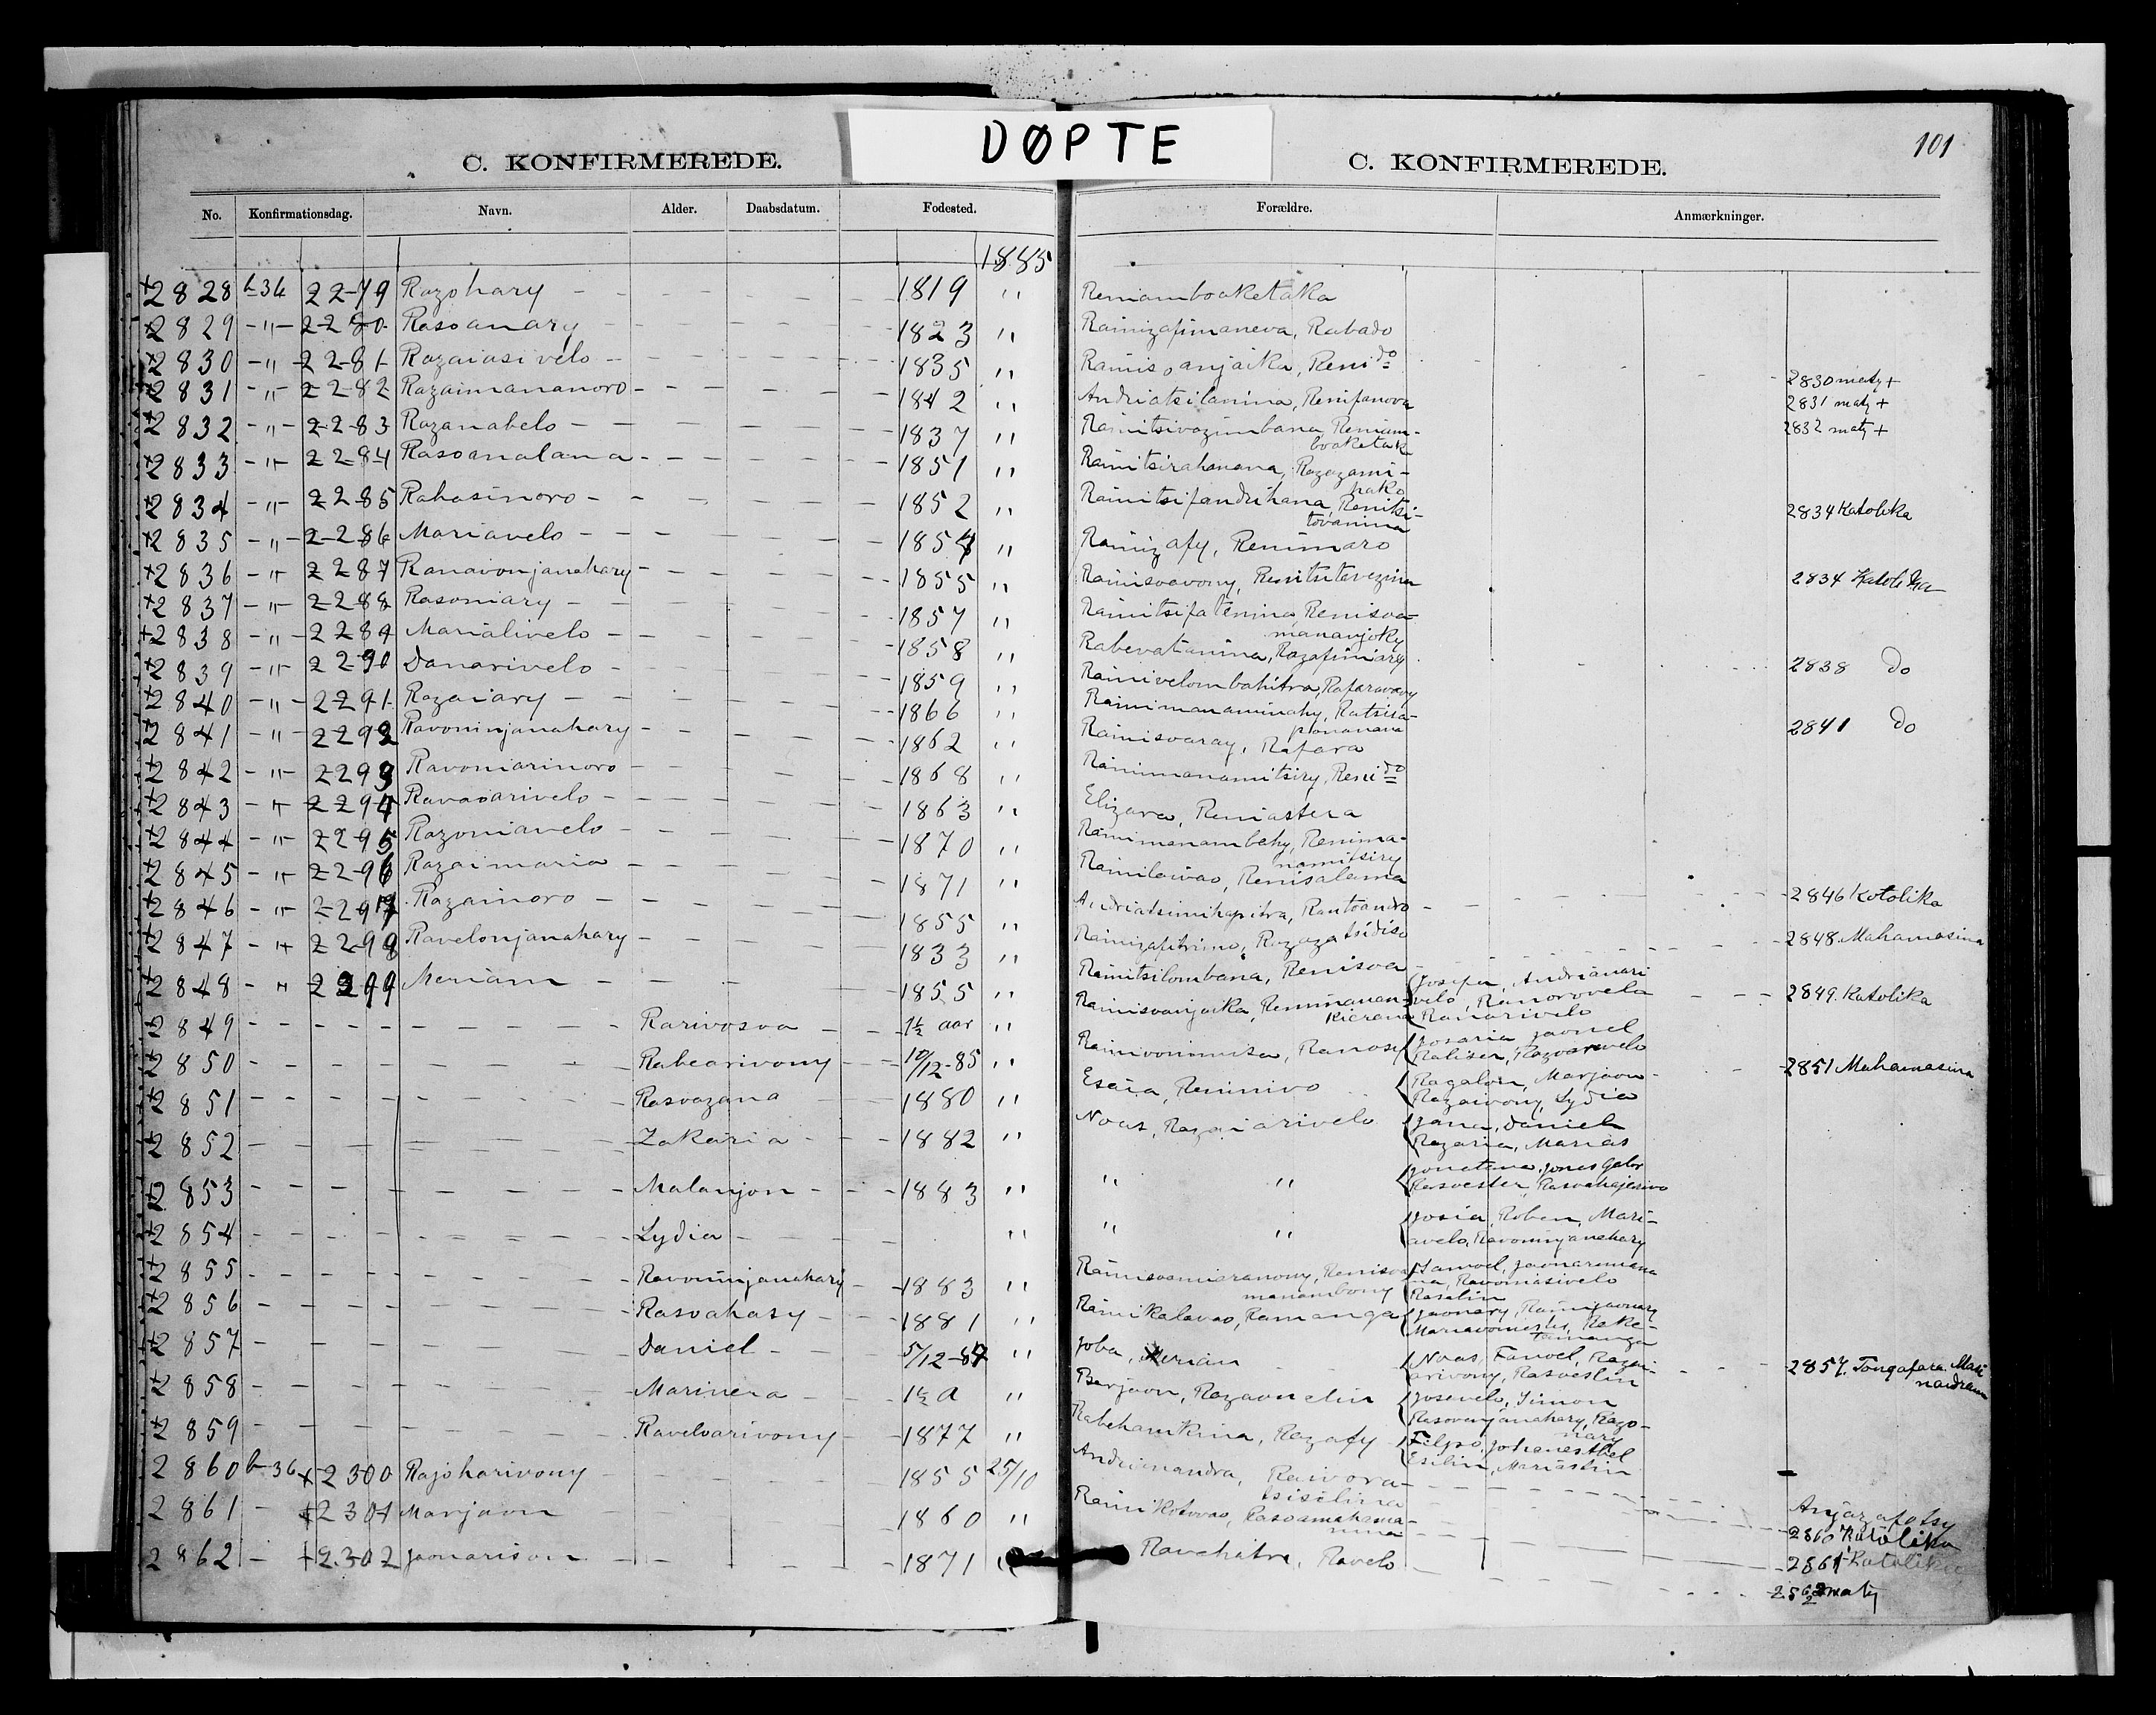 DØPTE
101
C. KONFIRMEREDE.
C. KONFIRMEREDE.
No. Konfirmationsdag. Navn. Alder. Daabsdatum. Fodested.
Forældre. Anmærkninger.
1885
+2828 b-36 2279 Razohary 1819 " Reniamboaketaka
+2829 -"- 2280 Rasoanary 1823 " Rainizafimaneva, Rabado
+2830 -"- 2281 Razaiasivelo 1835 " Rainisoanjaika, Reni do 2830 maty +
+2831 -"- 2282 Razaimananoro 1842 " Andriatsilanina, Renifanova 2831 maty +
+2832 -"- 2283 Razanabelo 1837 " Rainitsivazimbana Reniam-
boaketak 2832 maty +
+2833 -"- 2284 Rasoanalama 1851 " Rainitsirahonana, Razazami-
hako
+2834 -"- 2285 Rahasinoro 1852 " Rainitsifandrihana, Renitsi-
tovanina 2834 Katolika
+2835 -"- 2286 Mariavelo 1854 " Rainizafy, Renimaro
+2836 -"- 2287 Ranavonjanahary 1855 " Rainisoavony, Renitsitavezina 2834 Katolika
+2837 -"- 2288 Rasoniary 1857 " Rainitsifatenina, Renisoa-
mananjoky
+2838 -"- 2289 Marialivelo 1858 " Rabevatanina, Razafiniary 2838 Do
+2839 -"- 2290 Danarivelo 1859 " Rainivelombahitra, Rafaravavy
+2840 -"- 2291 Razaiary 1866 " Rainimanaminahy, Ratsisa-
+2841 -"- 2292 Ravoninjanahary 1862 " Rainisoaray, Rafara 2841 Do
+2842 -"- 2293 Ravoniarinoro 1868 " Rainimanamitsiry, Reni do
+2843 -"- 2294 Ravaoarivelo 1863 " Elizara, Reniastera
+2844 -"- 2295 Razoniavelo 1870 " Rainimanambehy, Renima-
namitsiry
+2845 -"- 2296 Razaimaria 1871 " Rainilaivao, Renisalama
+2846 -"- 2297 Razainoro 1855 " Andriatsimihapitra, Rantoandro 2846 Katolika
+2847 -"- 2298 Ravelonjanahary 1833 " Rainizafitrimo, Razazatsidiso
2848. Mahamasina
+2848 -"- 2299 Meriam 1855 " Rainitsilombana, Renisoa
+2849 Rarivosoa 1½ aar " Rainisoanjaika, Renimanan-
kierana Josefa, Andrianari
velo, Ranorovelo
Ranarivelo 2849. Katolika
+2850 Rabearivony 10/12-85 " Rainivonimisa, Ranosy Josaria Jaonel
Raliser, Razoarivelo
+2851 Rasoazana 1880 " Esaia, Reninivo Ragalon, Marjaon-
Razaivony, Lydia 2851 Mahamasina
+2852 Zakaria 1882 " Noas, Razaiarivelo Jana, Daniel
Razaria, Marias
+2853 Malanjon 1883 " " " Jonatana, Jonas Gabr
Rasoester, Rasoahajarivo
+2854 Lydia " " " Josia, Roben, Mari-
avelo, Ravoninjanahary
+2855 Ravoninjanahary 1883 " Rainisoamieranony, Renisoa
manambony Samoel, Jaonarimana
na, Ravoniasivelo
Raselin
+2856 Rasoahasy 1881 " Rainikalavao, Ramanga Jaonary, Rainijaonary
Mariavomester, Reke-
tamanga
+2857 Daniel 5/12-84 " Joba, Merian Noas, Fanoel, Razai-
arivony, Rasoestin 2857. Tongafara Masi
nandraina
+2858 Marinera 1½ a " Berjaon, Razaonelin Josevelo, Simon
Rasoanjanahary, Razo-
nary
+2859 Raveloarivony 1877 " Rabehamkina, Razafy Filipo, Johanesthel
Esilin, Mariastin
2860 b-36 +2300 Rajoharivony 1855 25/10 Andrianandra, Raivora-
tsisilina Anjazafotsy
2861 - +2301 Marjaon 1860 " Rainikotovao, Rasoamahama-
nina 2860 Katolika
2862 - +2302 Jaonarison 1871 " Ravehitra, Ravelo 2861 Katolika
2862 maty